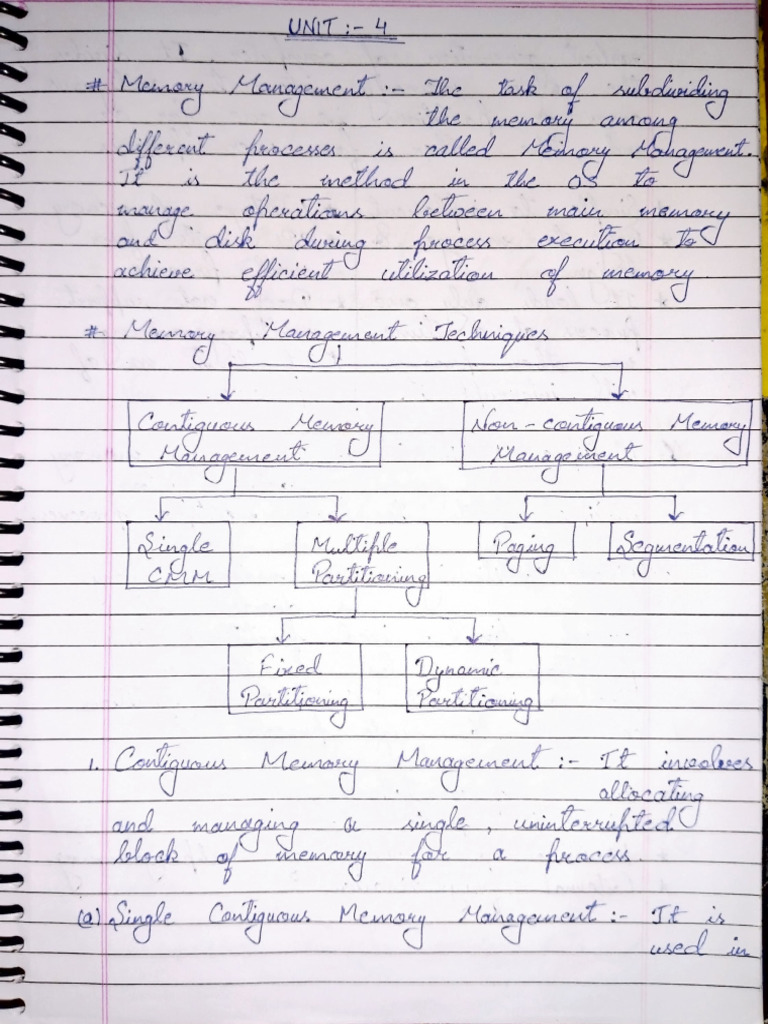 UNIT :- 4
# Memory Management :- The task of subdividing
the memory among
different processes is called Memory Management.
It is the method in the OS to
manage operations between main memory
and disk during process execution to
achieve efficient utilization of memory
# Memory Management Techniques
Contiguous Memory Management
Non-contiguous Memory Management
Single CMM
Multiple Partitioning
Paging
Segmentation
Fixed Partitioning
Dynamic Partitioning
1. Contiguous Memory Management :- It involves
allocating
and managing a single, uninterrupted
block of memory for a process.
(a) Single Contiguous Memory Management :- It is
used in